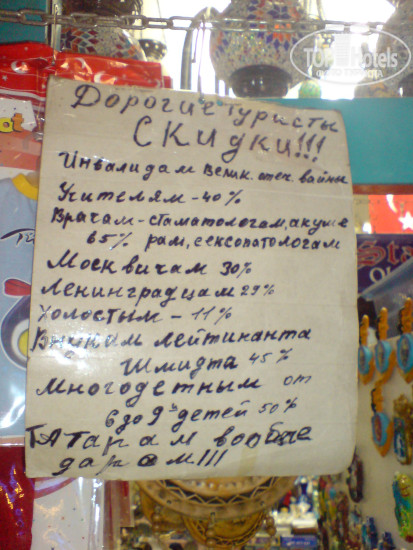 Дорогие туристы
СКИДКИ!!!
Инвалидам Велик. отеч. вайны
Учителям - 40%
Врачам - стаматологам, акуше
65% рам, сексопатологам
Москвичам 30%
Ленинградцам 29%
Холостым - 11%
Внукам лейтинанта
Шмидта 45%
Многодетным от
6 до 9 детей 50%
ТАТарам вообще
даром!!!
TopHotels